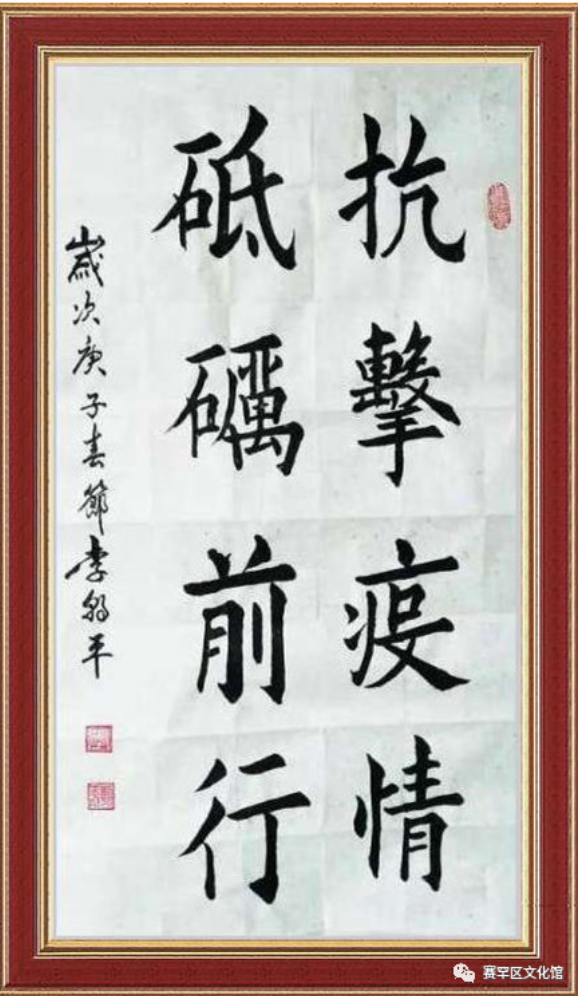 抗擊疫情
砥礪前行
歲次庚子春節李翰平
赛罕区文化馆